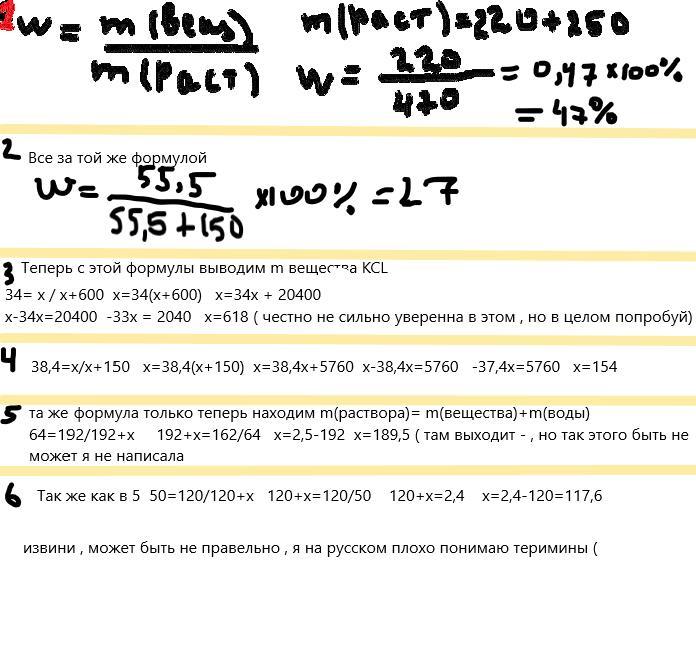 1 w = m (вещ) / m (раст) m(раст)=220+250
w = 220 / 470 = 0,47 x100%
= 47%
2 Все за той же формулой
w = 55,5 / 55,5+150 x100% =27
3 Теперь с этой формулы выводим m вещества KCL
34= x / x+600 x=34(x+600) x=34x + 20400
x-34x=20400 -33x = 2040 x=618 ( честно не сильно уверенна в этом , но в целом попробуй)
4 38,4=x/x+150 x=38,4(x+150) x=38,4x+5760 x-38,4x=5760 -37,4x=5760 x=154
5 та же формула только теперь находим m(раствора)= m(вещества)+m(воды)
64=192/192+x 192+x=162/64 x=2,5-192 x=189,5 ( там выходит - , но так этого быть не
может я не написала
6 Так же как в 5 50=120/120+x 120+x=120/50 120+x=2,4 x=2,4-120=117,6
извини , может быть не правельно , я на русском плохо понимаю теримины (